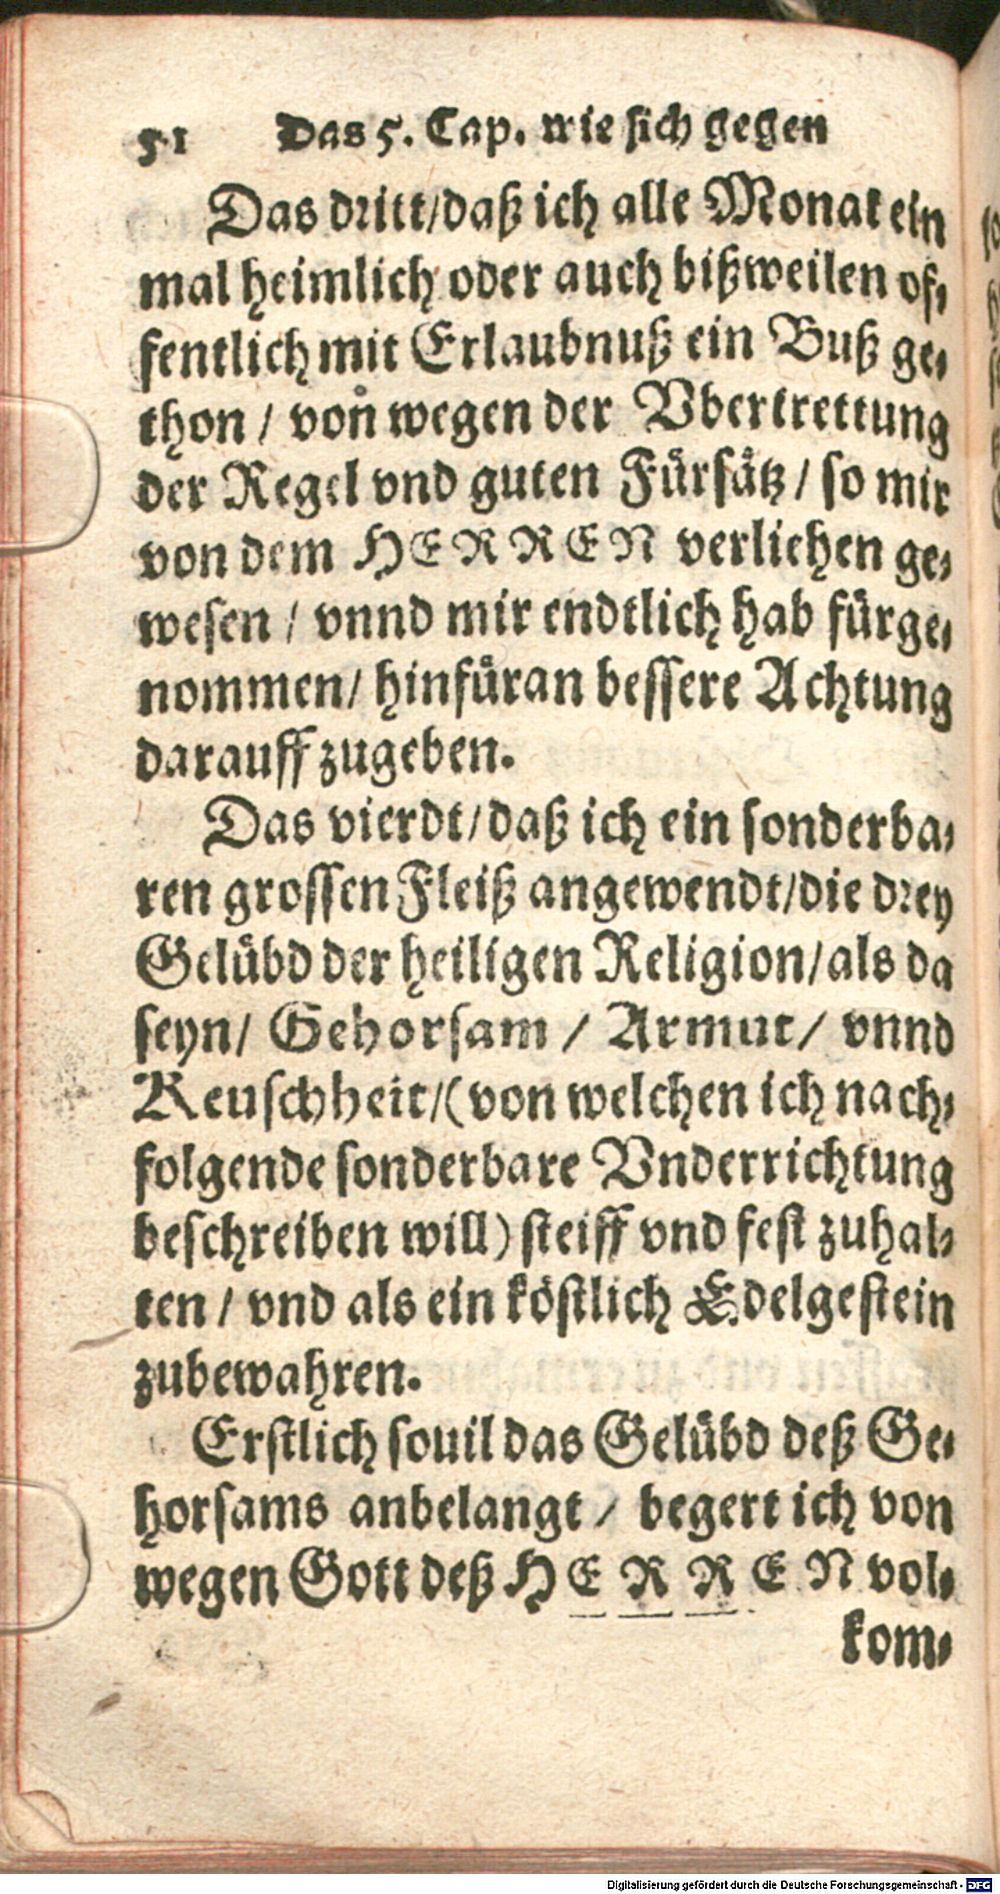 51 Das 5. Cap. wie sich gegen
Das dritt/daß ich alle Monat ein
mal heimlich oder auch bißweilen of⸗
fentlich mit Erlaubnuß ein Buß ge⸗
thon / von wegen der Vbertrettung
der Regel vnd guten Fürsätz / so mir
von dem HERREN verliehen ge⸗
wesen / vnnd mir endtlich hab fürge⸗
nommen/ hinfüran bessere Achtung
darauff zugeben.
Das vierdt/daß ich ein sonderba⸗
ren grossen Fleiß angewendt/die drey
Gelübd der heiligen Religion/als da
seyn/ Gehorsam / Armut/ vnnd
Keuschheit/(von welchen ich nach⸗
folgende sonderbare Vnderrichtung
beschreiben will) steiff vnd fest zuhal⸗
ten / vnd als ein köstlich Edelgestein
zubewahren.
Erstlich souil das Gelübd deß Ge⸗
horsams anbelangt / begert ich von
wegen Gott deß HERREN vol⸗
kom⸗
Digitalisierung gefördert durch die Deutsche Forschungsgemeinschaft - DFG